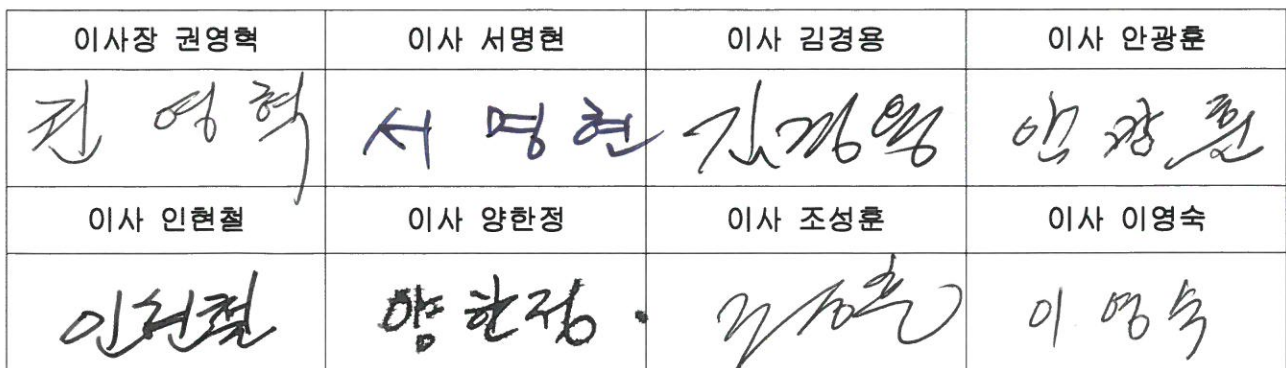 이사장 권영혁 이사 서명현 이사 김경용 이사 안광훈
권 영 혁 서 명 현 김경용 안 광 훈
이사 인현철 이사 양한정 이사 조성훈 이사 이영숙
인현철 양한정. 조성훈 이 영 숙